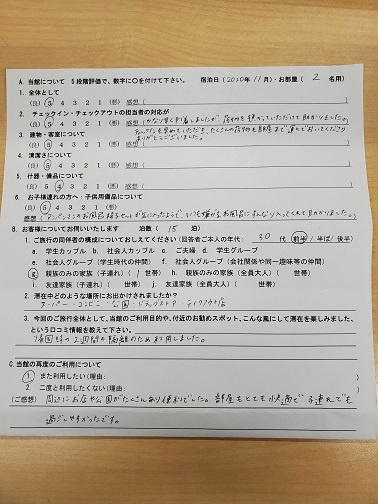 A. 当館について 5段階評価で、数字に〇を付けて下さい。 宿泊日(2020年11月)・お部屋( 2 名用)
1. 全体として
(良) 5 4 3 2 1 (悪) 感想(
2. チェックイン・チェックアウトの担当者の対応が
(良) 5 4 3 2 1 (悪) 感想( かなり早く到着しましたが、荷物を預かっていただけて助かりました。
ありがとうございました。
3. 建物・客室について
(良) 5 4 3 2 1 (悪) 感想(
4. 清潔さについて
(良) 5 4 3 2 1 (悪) 感想(
5. 什器・備品について
(良) 5 4 3 2 1 (悪) 感想(
6. お子様連れの方へ・子供用備品について
感想(アンパンマンのお風呂 お風呂に すんなり入ってくれて助かりました。)
B. お客様についてお伺いいたします 泊数( 15 泊)
1. ご旅行の同伴者の構成についておしえてください(回答者ご本人の年代: 30 代 前半/半ば/後半)
a. 学生カップル b. 社会人カップル c. ご夫婦 d. 学生グループ
e. 社会人グループ(学生時代の仲間) f. 社会人グループ(会社関係や同一趣味等の仲間)
g. 親族のみの家族(子連れ)( 1 世帯) h. 親族のみの家族(全員大人)( 世帯)
i. 友達家族(子連れ)( 世帯) j. 友達家族(全員大人)( 世帯)
2. 滞在中どのような場所にお出かけされましたか?
スーパー・コンビニ・公園・ドラッグストア・テイクアウト店
3. 今回のご旅行全体として、当館のご利用目的や、付近のお勧めスポット、こんな風にして滞在を楽しみました、
という口コミ情報を教えて下さい。
帰国時の2週間の隔離のため利用しました。
C. 当館の再度のご利用について
1. また利用したい(理由: )
2. 二度と利用したくない(理由: )
(ご感想) 周辺にお店や公園がたくさんあり便利でした。部屋もとても快適で子連れでも
過ごしやすかったです。